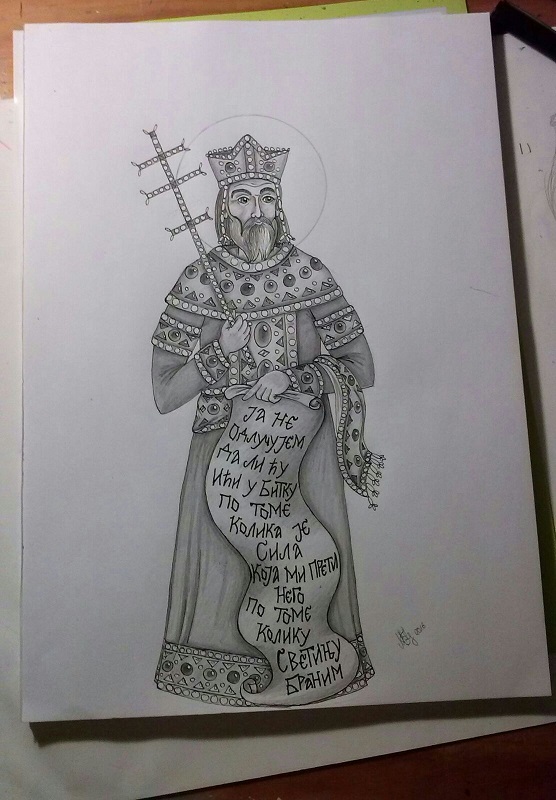 ЈА НЕ
ОДЛУЧУЈЕМ
ДА ЛИ ЋУ
ИЋИ У БИТКУ
ПО ТОМЕ
КОЛИКА ЈЕ
СИЛА
КОЈА МИ ПРЕТИ
НЕГО
ПО ТОМЕ
КОЛИКУ
СВЕТИЊУ
БРАНИМ